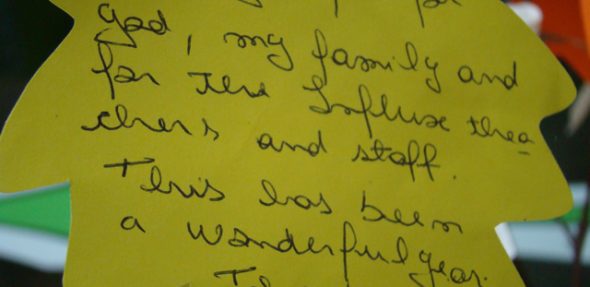 god, my family and
for The thea-
chers and staff.
This has been
a wonderful year.